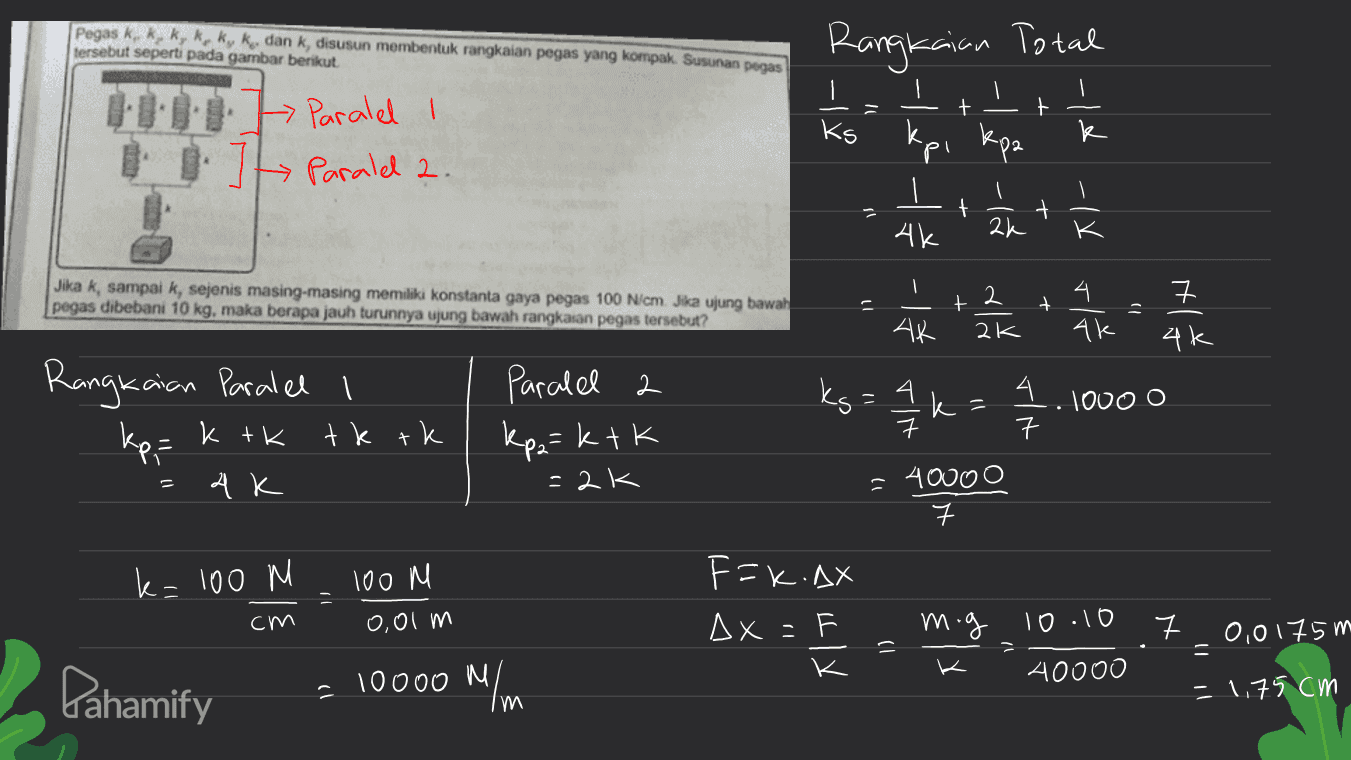 Pegas k, k, k, k, k, k, dan k, disusun membentuk rangkaian pegas yang kompak. Susunan pegas
tersebut seperti pada gambar berikut.
→ Paralel 1
→ Paralel 2.
Jika k, sampai k, sejenis masing-masing memiliki konstanta gaya pegas 100 N/cm. Jika ujung bawah
pegas dibebani 10 kg, maka berapa jauh turunnya ujung bawah rangkaian pegas tersebut?
Rangkaian Paralel 1
kp1 = k + k + k + k
= 4k
Paralel 2
kp2 = k + k
= 2k
k = 100 N/cm = 100 N/0,01 m
= 10000 N/m
Rangkaian Total
1/ks = 1/kp1 + 1/kp2 + 1/k
= 1/4k + 1/2k + 1/k
= 1/4k + 2/2k + 4/4k = 7/4k
ks = 4/7 k = 4/7 . 10000
= 40000/7
F = k . Δx
Δx = F/k = m.g/k = 10 . 10/40000 . 7 = 0,0175 m
= 1,75 cm
Pahamify